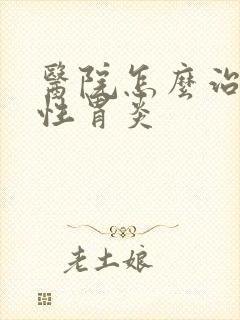 醫院怎麼治
性胃炎
老土娘